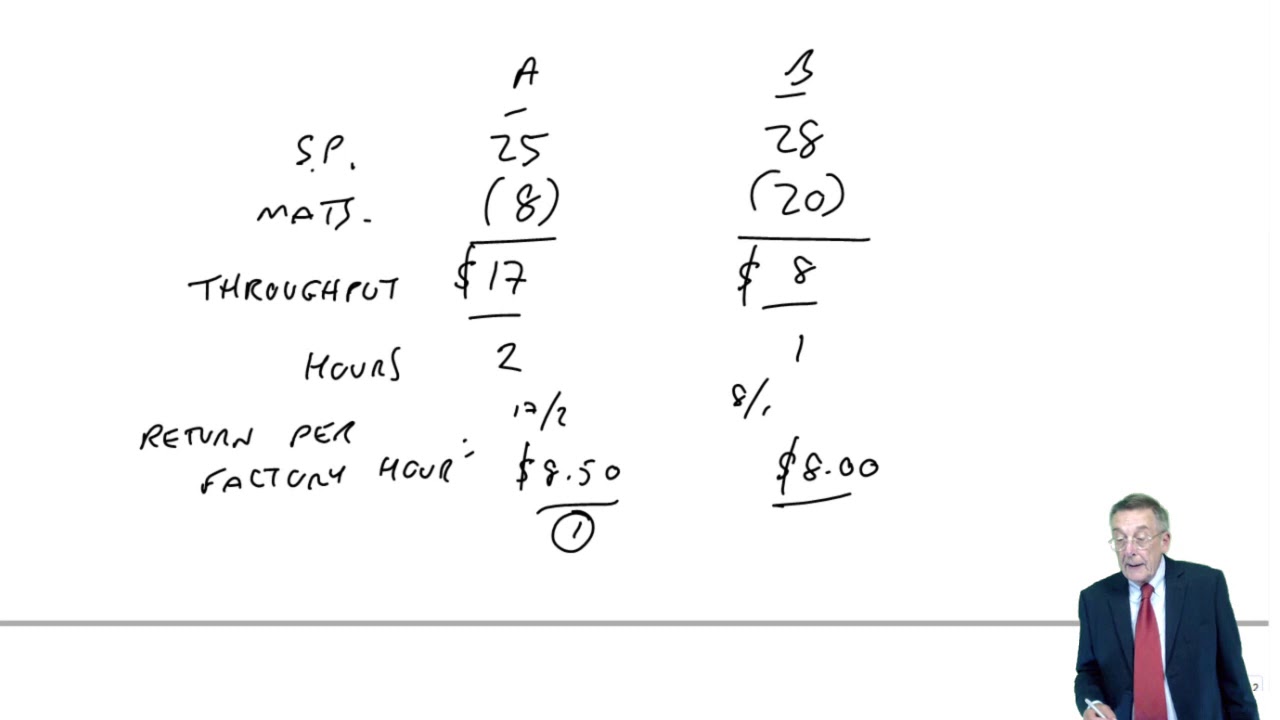 A B
S.P. 25 28
MATS. (8) (20)
THROUGHPUT $17 $ 8
HOURS 2 1
17/2 8/1
RETURN PER
FACTORY HOUR: $8.50 $8.00
1
2